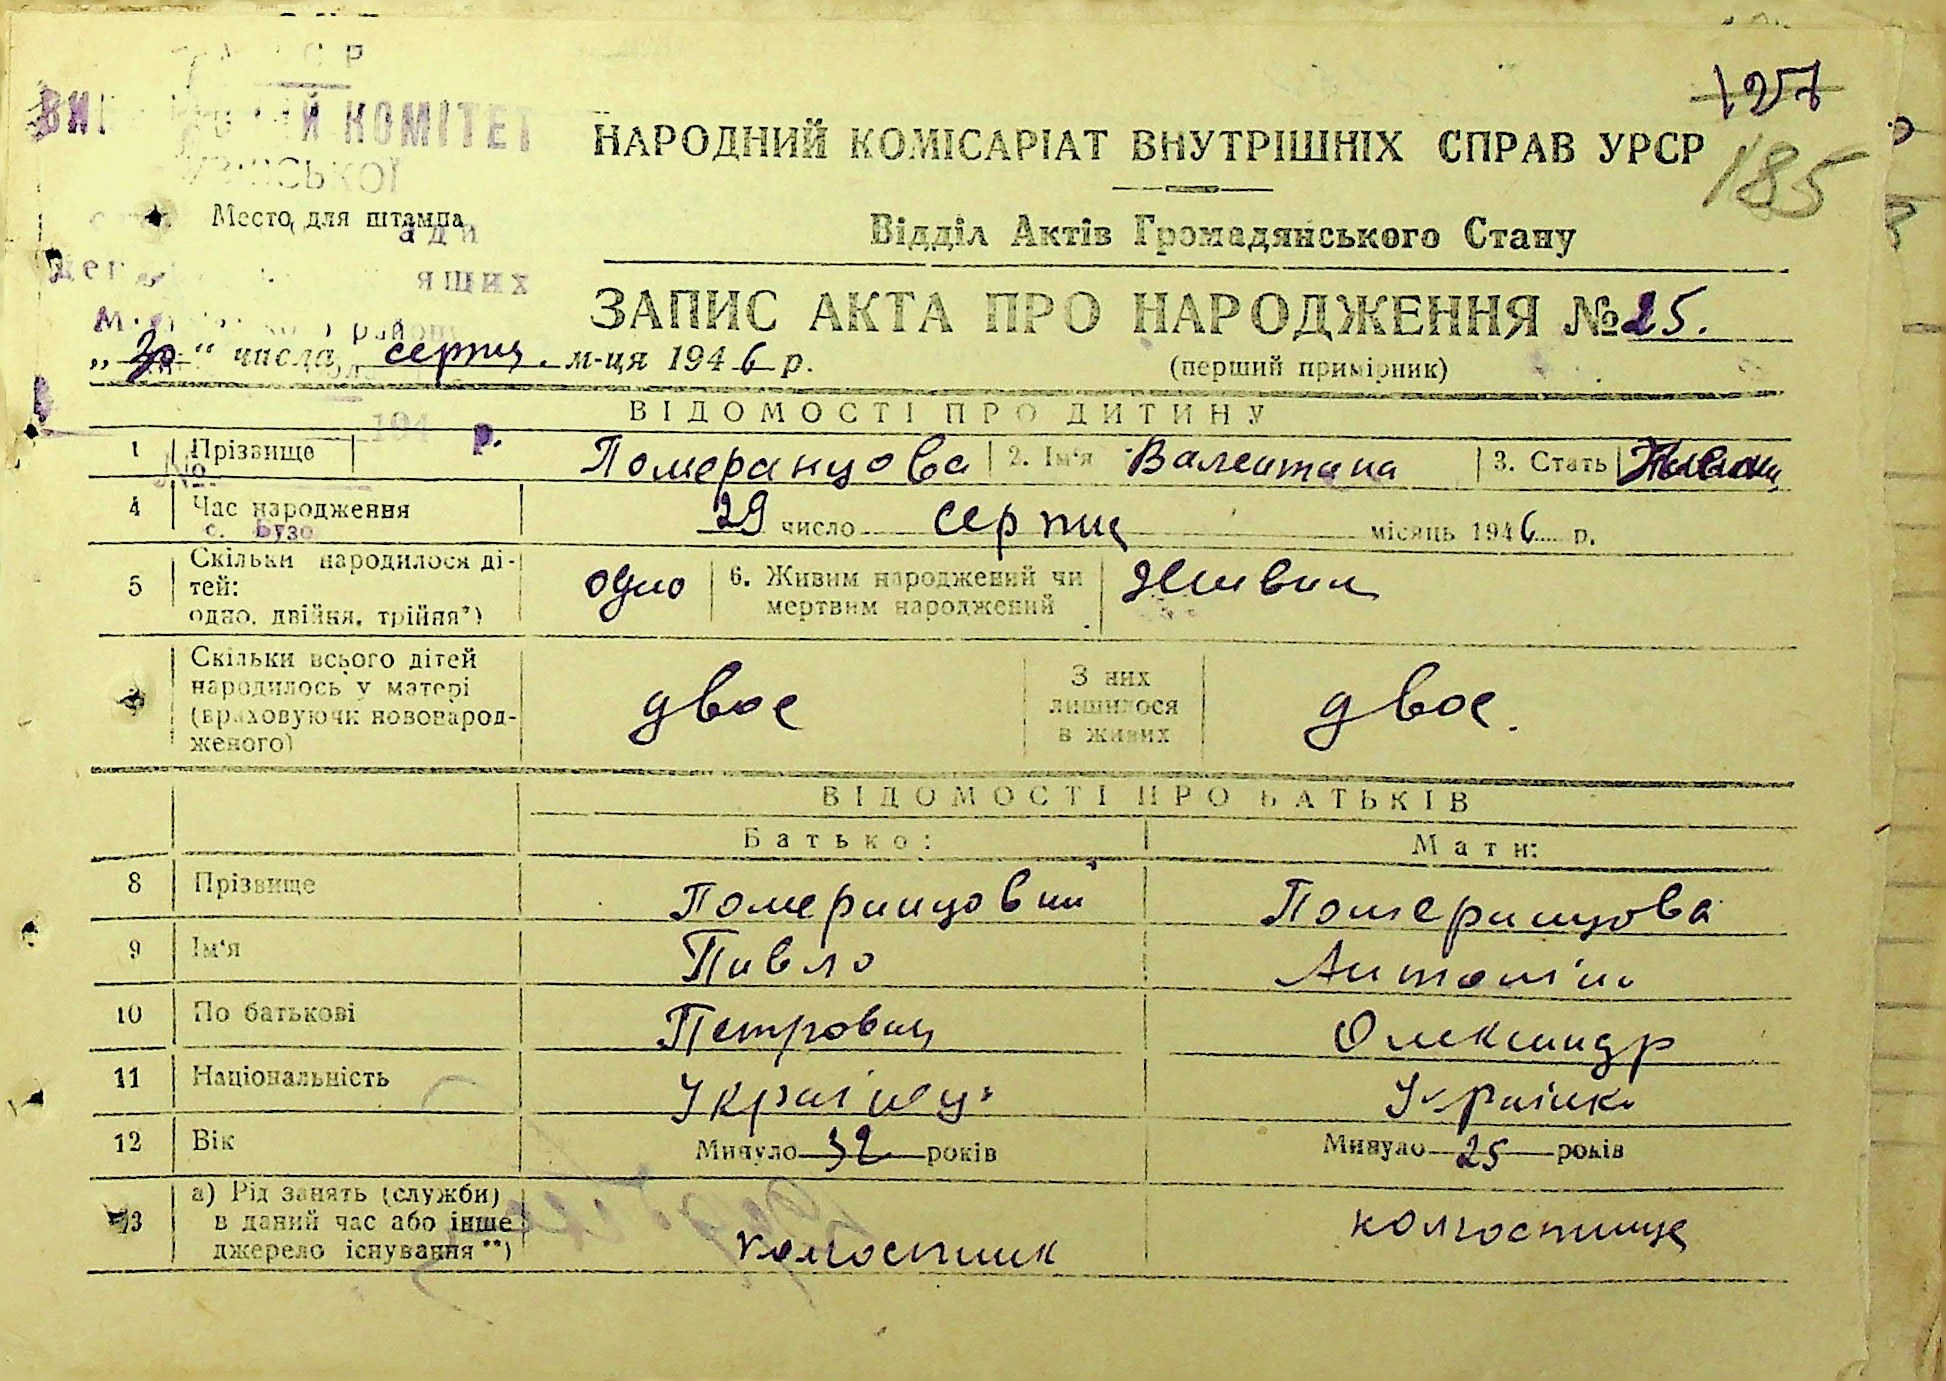 127
185
КОМІТЕТ
НАРОДНИЙ КОМІСАРІАТ ВНУТРІШНІХ СПРАВ УРСР
Место для штампа
Відділ Актів Громадянського Стану
ЗАПИС АКТА ПРО НАРОДЖЕННЯ № 25.
„ 30 “ числа серпня м-ця 1946 р.
(перший примірник)
ВІДОМОСТІ ПРО ДИТИНУ
194 р.
1 Прізвище Померанцова 2. Ім'я Валентина 3. Стать
№
4 Час народження 29 число серпня місяць 1946 р.
с. Бузо
5 Скільки народилося ді-
тей:
одно, двійня, трійня*) одно 6. Живим народжений чи
мертвим народжений живим
Скільки всього дітей
народилось у матері
(враховуючи новонарод-
женого) двоє З них
лишилося
в живих двоє.
ВІДОМОСТІ ПРО БАТЬКІВ
Батько: Мати:
8 Прізвище Померанцовий Померанцова
9 Ім'я Павло Антоніна
10 По батькові Петрович Олександр
11 Національність Українець Українка
12 Вік Минуло 32 років Минуло 25 років
13 а) Рід занять (служби)
в даний час або інше
джерело існування **) колгоспник колгоспниця